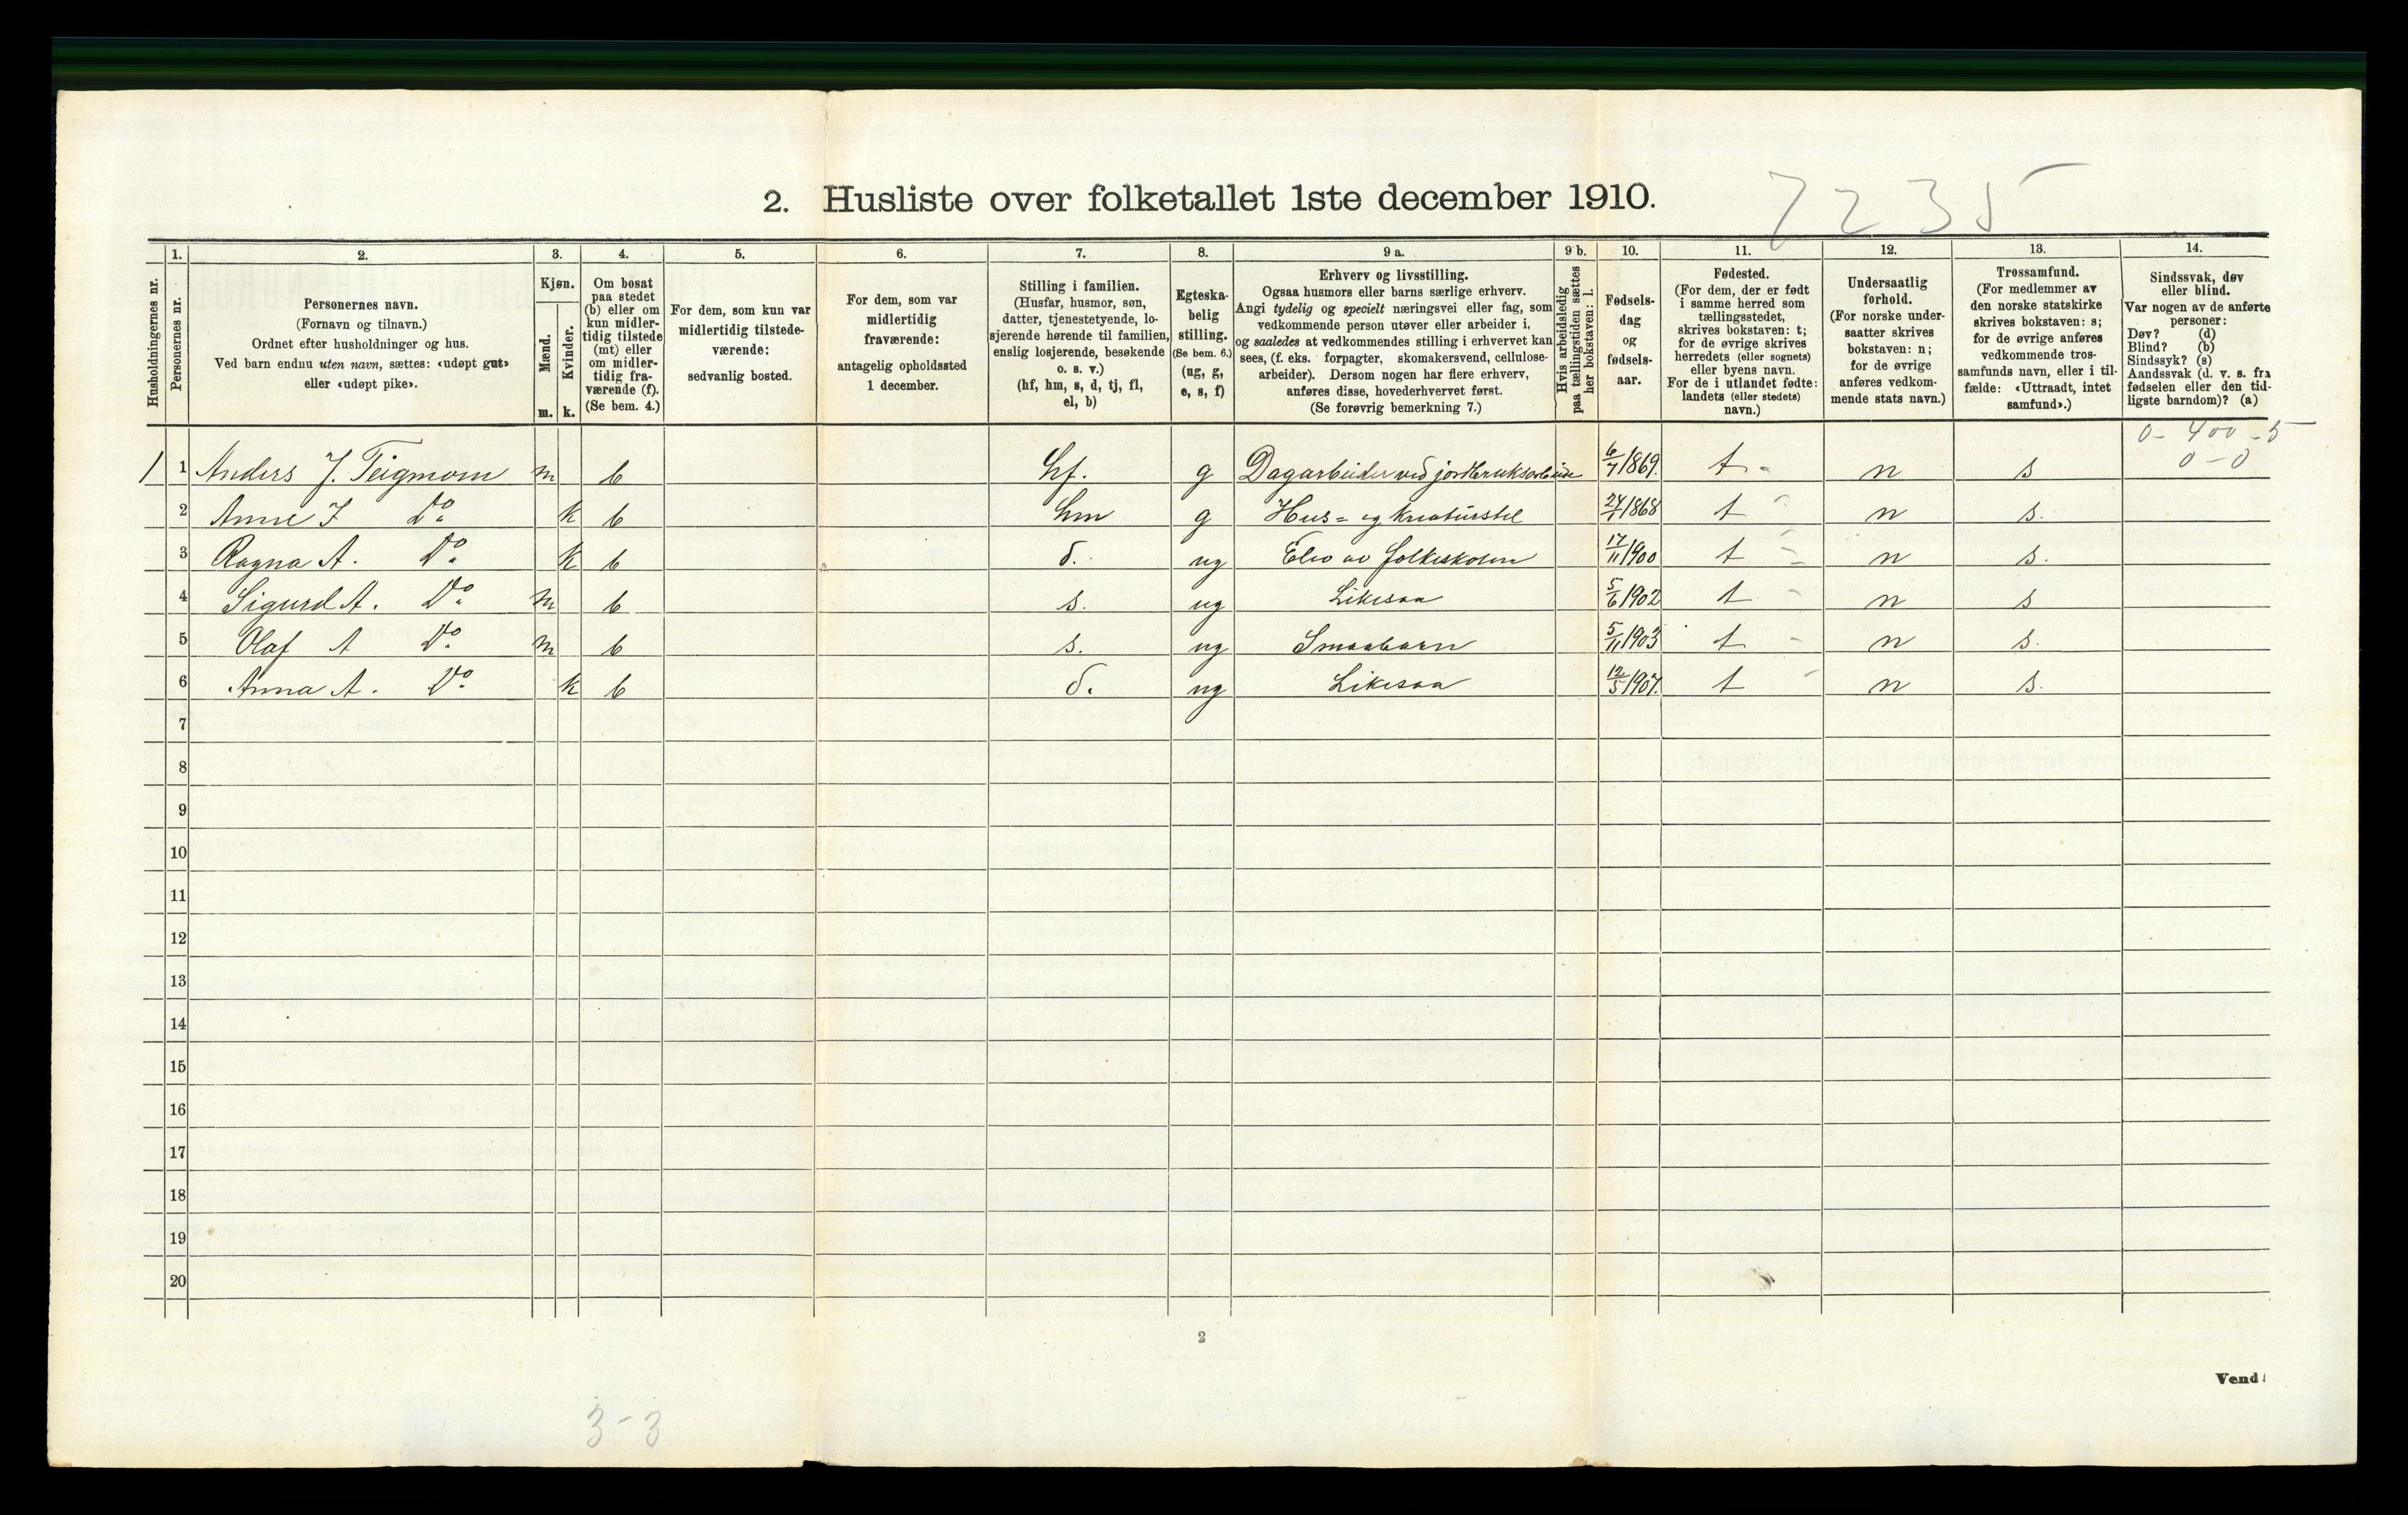 7235
2. Husliste over folketallet 1ste december 1910.
Husholdningernes nr.
1. Personernes nr.
2. Personernes navn.
(Fornavn og tilnavn.)
Ordnet efter husholdninger og hus.
Ved barn endnu uten navn, sættes: «udøpt gut»
eller «udøpt pike».
3. Kjøn.
Mænd. m.
Kvinder. k.
4. Om bosat
paa stedet
(b) eller om
kun midler-
tidig tilstede
(mt) eller
om midler-
tidig fra-
værende (f).
(Se bem. 4.)
5. For dem, som kun var
midlertidig tilstede-
værende:
sedvanlig bosted.
6. For dem, som var
midlertidig
fraværende:
antagelig opholdssted
1 december.
7. Stilling i familien.
(Husfar, husmor, søn,
datter, tjenestetyende, lo-
sjerende hørende til familien,
enslig losjerende, besøkende
o. s. v.)
(hf, hm, s, d, tj, fl,
el, b)
8. Egteska-
belig
stilling.
(Se bem. 6.)
(ug, g,
e, s, f)
9 a. Erhverv og livsstilling.
Ogsaa husmors eller barns særlige erhverv.
Angi tydelig og specielt næringsvei eller fag, som
vedkommende person utøver eller arbeider i,
og saaledes at vedkommendes stilling i erhvervet kan
sees, (f. eks. forpagter, skomakersvend, cellulose-
arbeider). Dersom nogen har flere erhverv,
anføres disse, hovederhvervet først.
(Se forøvrig bemerkning 7.)
9 b. Hvis arbeidsledig
paa tællingstiden sættes
her bokstaven: l.
10. Fødsels-
dag
og
fødsels-
aar.
11. Fødested.
(For dem, der er født
i samme herred som
tællingsstedet,
skrives bokstaven: t;
for de øvrige skrives
herredets (eller sognets)
eller byens navn.
For de i utlandet fødte:
landets (eller stedets)
navn.)
12. Undersaatlig
forhold.
(For norske under-
saatter skrives
bokstaven: n;
for de øvrige
anføres vedkom-
mende stats navn.)
13. Trossamfund.
(For medlemmer av
den norske statskirke
skrives bokstaven: s;
for de øvrige anføres
vedkommende tros-
samfunds navn, eller i til-
fælde: «Uttraadt, intet
samfund».)
14. Sindssvak, døv
eller blind.
Var nogen av de anførte
personer:
Døv? (d)
Blind? (b)
Sindssyk? (s)
Aandssvak (d. v. s. fra
fødselen eller den tid-
ligste barndom)? (a)
0 - 400 - 5
0 - 0
1 1 Anders J. Teigmom m b hf. g Dagarbeider ved jordbruksarbeide 6/7 1869. t - n s
2 Anne J Do. k b hm g Hus= og kreaturstel 24/1 1868 t - n s.
3 Ragna A. Do. k b d. ug Elev av folkeskolen 17/11 1900 t - n s.
4 Sigurd A. Do. m b s. ug Likesaa 5/6 1902 t - n s
5 Olaf A Do. m b s. ug Smaabarn 5/11 1903 t - n s.
6 Anna A. Do. k b d. ug Likesaa 12/5 1907. t - n s.
7
8
9
10
11
12
13
14
15
16
17
18
19
20
2
Vend!
3 - 3